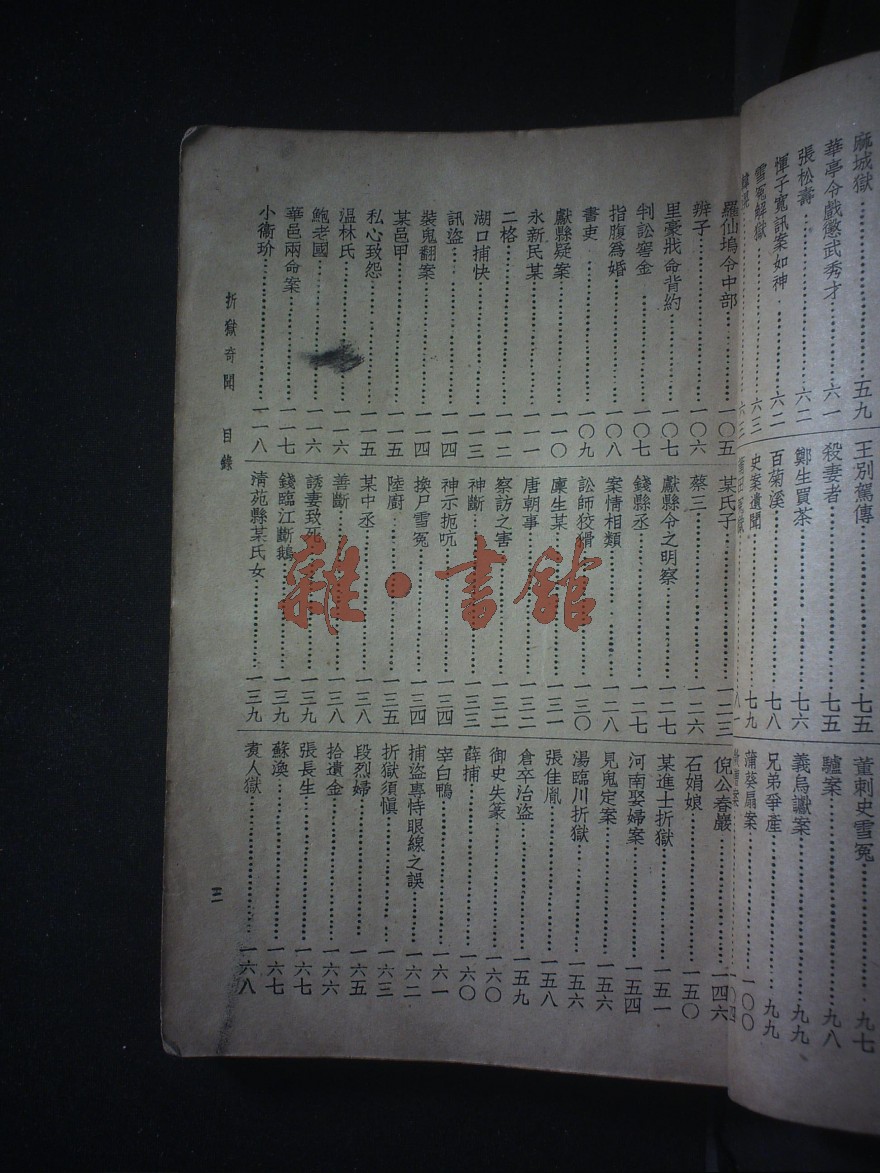 麻城獄…………五九
華亭令戲懲武秀才……六一
張松壽…………六二
惲子寬訊案如神……六二
雪冤解獄…………六三
王別駕傳…………七五
殺妻者…………七五
鄭生買茶…………七六
百菊溪…………七八
史案遺聞…………七九
董刺史雪冤…………九七
驢案…………九八
義烏讞案…………九九
兄弟爭產…………九九
蒲葵扇案…………一〇〇
羅仙塢令中部…………一〇五
辨子…………一〇六
里豪戕命背約…………一〇七
判訟窖金…………一〇七
指腹爲婚…………一〇八
書吏…………一〇九
獻縣疑案…………一一〇
永新民某…………一一一
二格…………一一二
湖口捕快…………一一三
訊盜…………一一四
裝鬼翻案…………一一四
某邑甲…………一一五
私心致怨…………一一五
溫林氏…………一一六
鮑老國…………一一六
華邑兩命案…………一一七
小衞玠…………一一八
某氏子…………一二三
蔡三…………一二六
獻縣令之明察…………一二七
錢縣丞…………一二七
案情相類…………一二八
訟師狡猾…………一三〇
廩生某…………一三一
唐朝事…………一三二
察訪之害…………一三二
神斷…………一三三
神示扼吭…………一三四
換尸雪冤…………一三四
陸廚…………一三五
某中丞…………一三八
善斷…………一三八
誘妻致死…………一三九
錢臨江斷鵝…………一三九
淸苑縣某氏女…………一三九
倪公春巖…………一四六
石娟娘…………一五〇
某進士折獄…………一五一
河南娶婦案…………一五四
見鬼定案…………一五六
湯臨川折獄…………一五六
張佳胤…………一五八
倉卒治盜…………一五九
御史失篆…………一六〇
薛捕…………一六〇
宰白鴨…………一六一
捕盜專恃眼線之誤…………一六二
折獄須愼…………一六三
段烈婦…………一六五
拾遺金…………一六六
張長生…………一六七
蘇渙…………一六七
賣人獄…………一六八
折獄奇聞　目錄
三
雜·書館